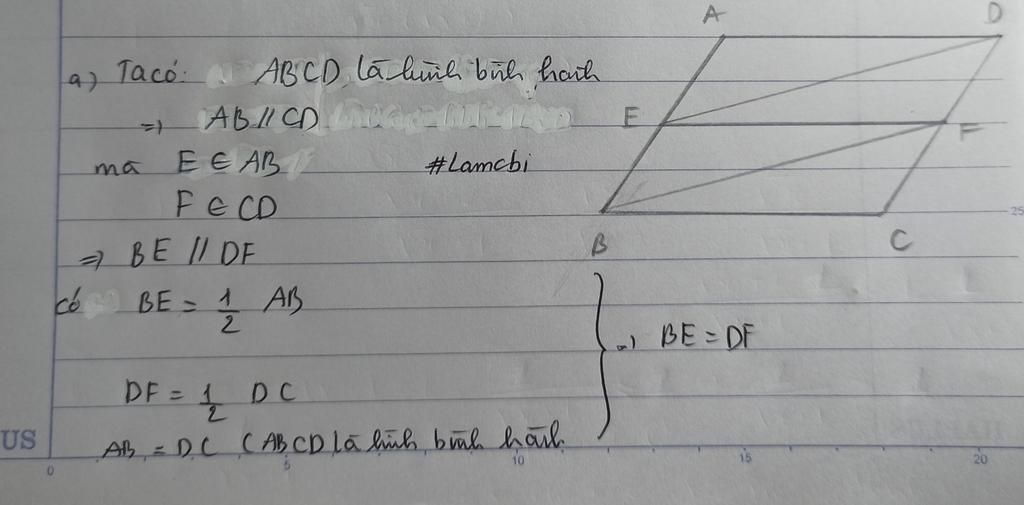 A D
a) Ta có: ABCD là hình bình hành
=> AB // CD
E F
mà E ∈ AB #Lamcbi
F ∈ CD
25
B C
=> BE // DF
có BE = 1/2 AB
=> BE = DF
DF = 1/2 DC
AB = DC (ABCD là hình bình hành
US
0 5 10 15 20